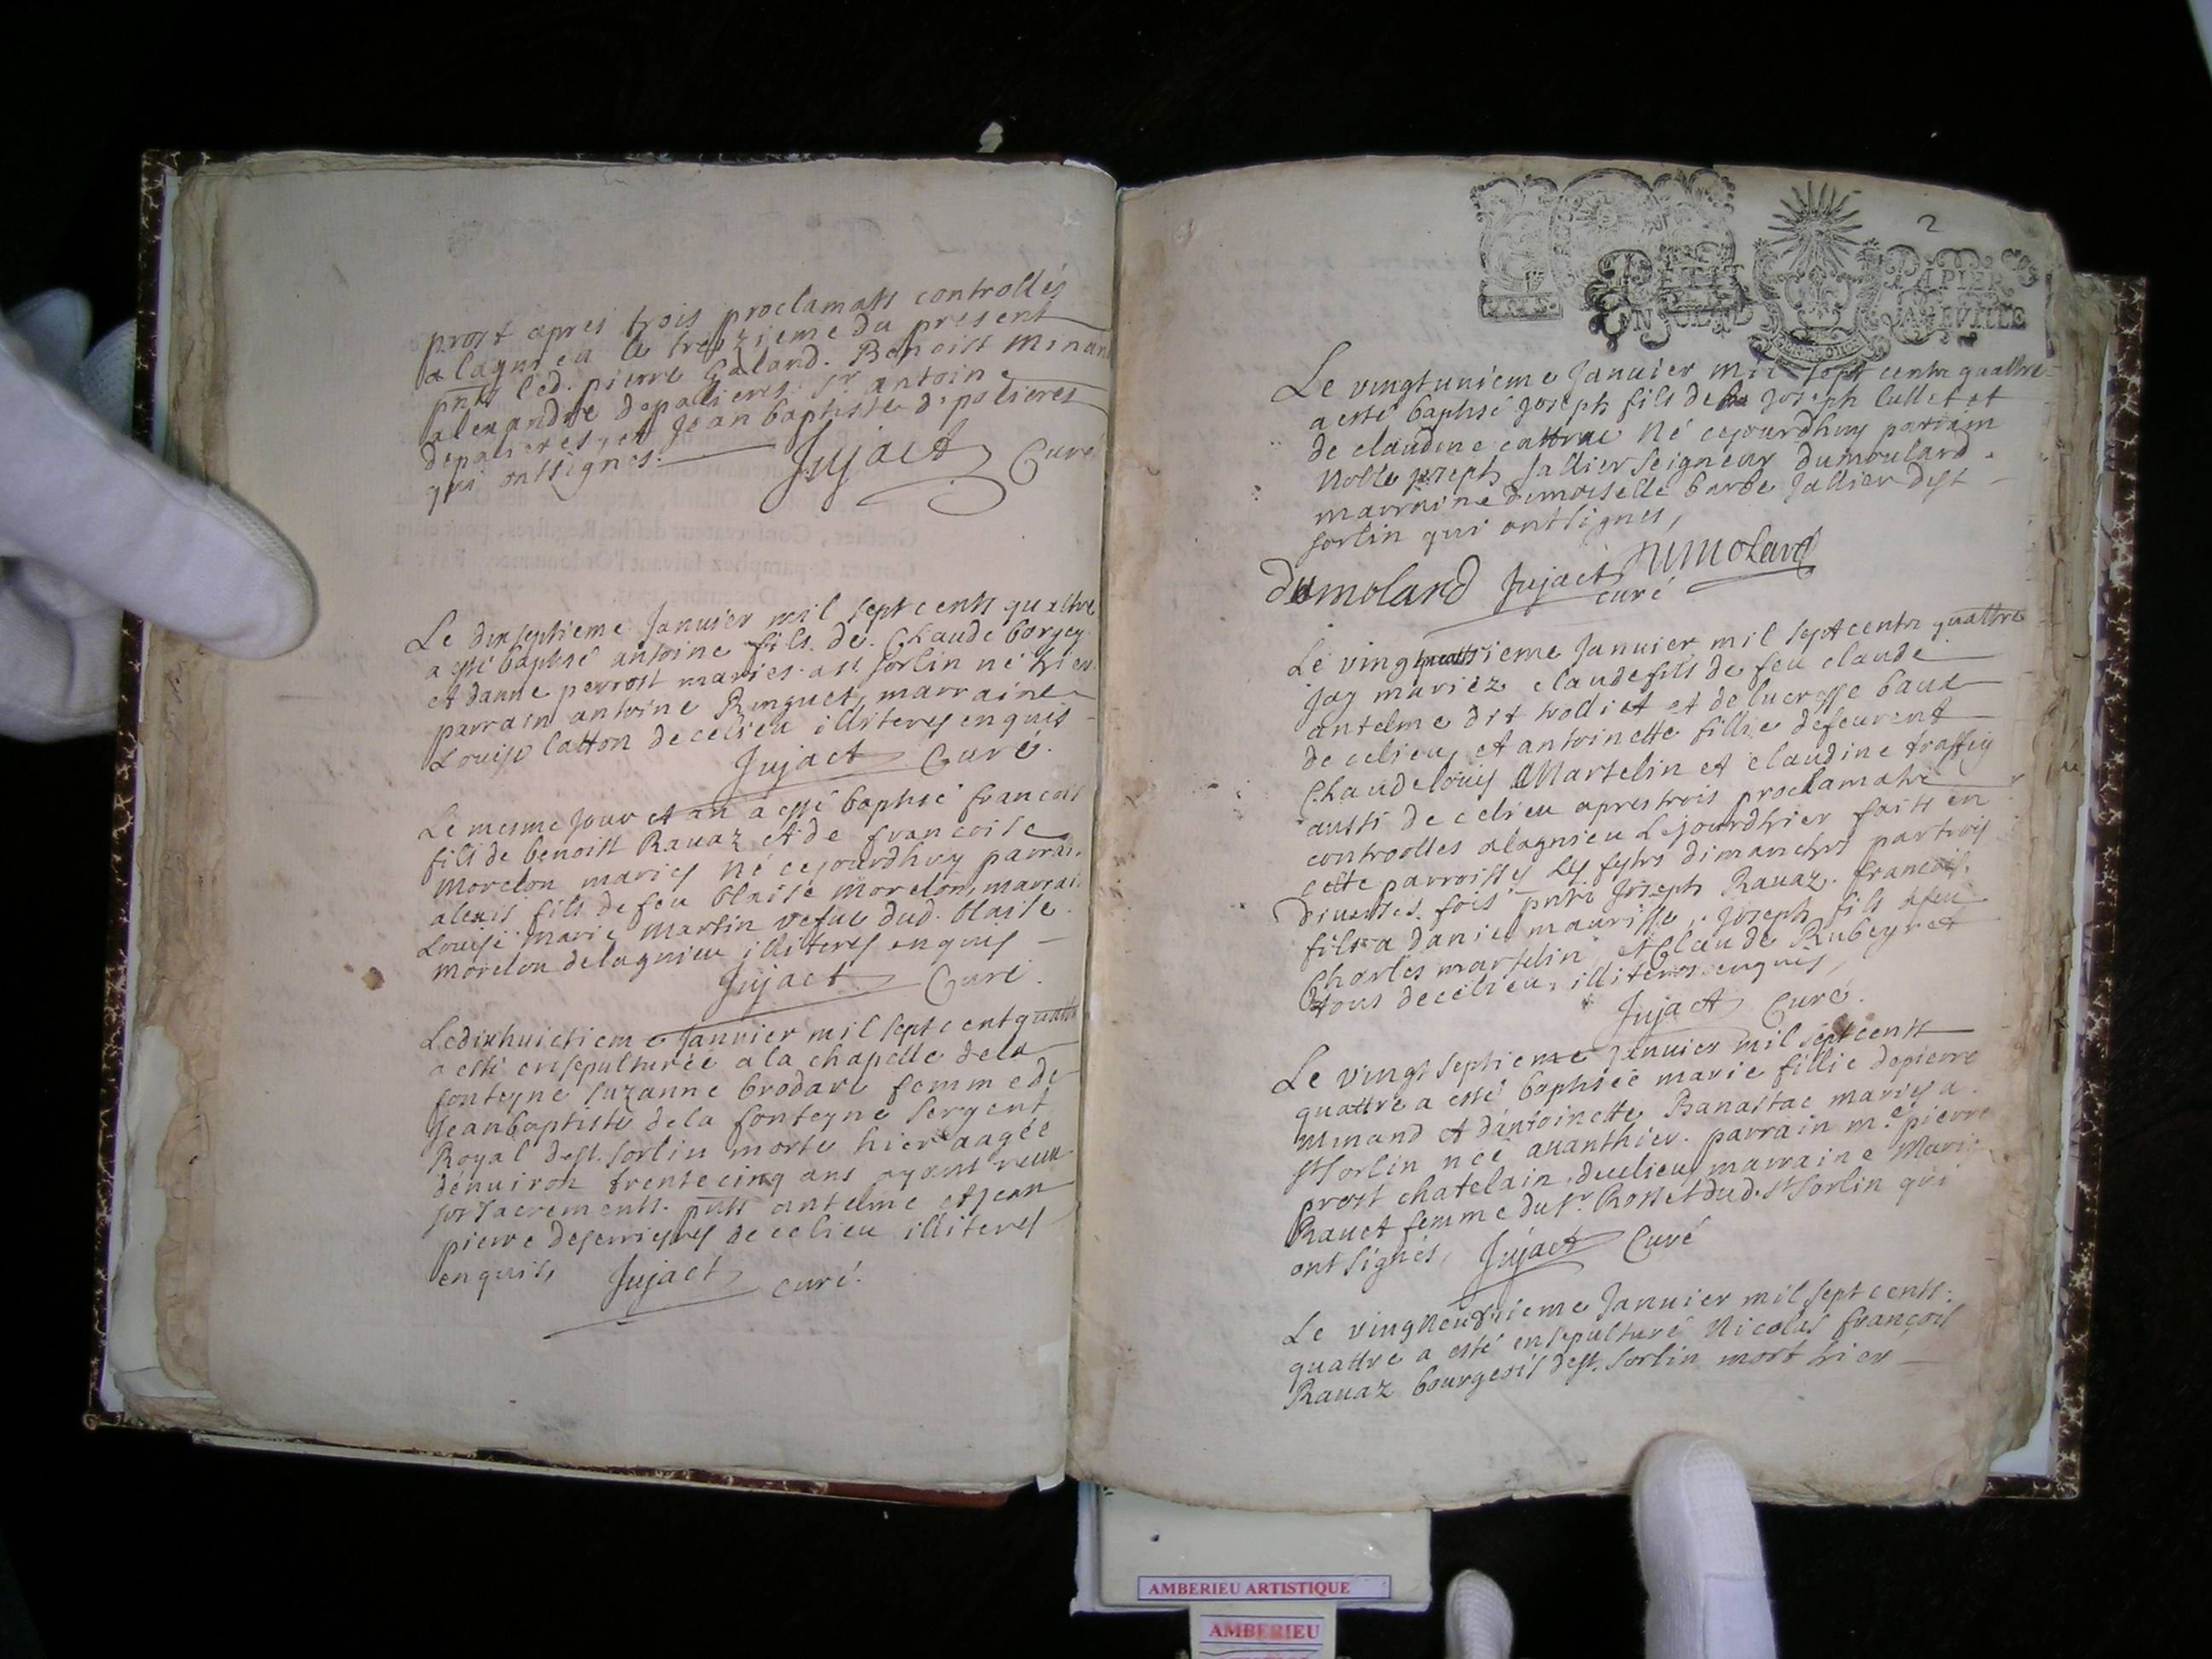 prost apres trois proclamats controllés
a lagnieu le treizieme du present
pnts led. pierre Galand. Benoist Minand
alexandre depalieres. sr antoine
depalieres, et Jean baptiste depalieres
qui ont signes.
Jujact Curé
Le dixseptieme Janvier mil sept cents quattre
a esté baptisé antoine fils de Claude borgey
et danne perrost mariés a st sorlin né hier
parrain antoine Ringuet, marraine
Louise latton de celieu illiteres enquis
Jujact Curé.
Le mesme jour et an a esté baptisé francois
fils de benoist Ravaz et de francoise
morelon mariés né cejourdhuy parrain
alexis fils de feu blaise morelon, marrain
Louise marie martin vefue dud. blaise
morelon de lagnieu illiteres enquis
Jujact Curé.
Le dixhuictieme Janvier mil sept cent quattre
a esté ensepulturée a la chapelle dela
fonteyne suzanne brodare femme de
Jeanbaptiste de la fonteyne sergent
Royal dest. sorlin morte hier aagée
denuiron trente cinq ans ayant receu
sos sacrements. pnts antelme et jean
pierre de celieu illiteres
enquis, Jujact curé.
2
PAPIER
Le vingtunieme Janvier mil sept cents quattre
a esté baptisé Joseph fils de Joseph lullet et
de claudine né cejourdhuy parrain
Noble joseph Jallier seigneur dumoulard.
marraine demoiselle barbe Jallier dest
sorlin qui ont signes,
Dumolard Jujact Dumolard
curé
Le vingt Janvier mil sept cents quattre
jay mariez claude fils de feu claude
antelme dit trolliet et de baue
de celieu, et antoinette fillie de feuvent
Chaudelouis Martelin et claudine traffey
aussi de celieu apres trois proclamats
controolles alagnieu Lejourdhier faits en
cette parroisse dimanches partrois
Diverses fois pnts Joseph Ravaz. francois
fils a daniel maurisse, Joseph fils afeu
Charles martelin et Claude Rubeyret
tous decelieu, illiteres enquis,
Jujact Curé.
Le vingt septieme Janvier mil sept cents
quattre a esté baptisée marie fillie depierre
minand et dantoinette Banastac mariés a
st sorlin née auanthier. parrain me. pierre
prost chatelain, decelieu, marraine Marie
Rauet femme du sr. Rosset dud. st sorlin qui
ont signés, Jujact Curé
Le vingneuvieme Janvier mil sept cents.
quattre a esté ensepulturé Nicolas françois
Ravaz bourgeois dest. sorlin mort hier
AMBERIEU ARTISTIQUE
AMBERIEU